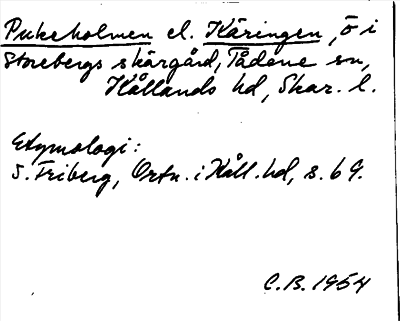 Pukeholmen el. Käringen, ö i
Storebergs skärgård, Tådene sn,
Kållands hd, Skar. l.
Etymologi:
S. Friberg, Ortn. i Kåll. hd, s. 69.
C.B. 1954